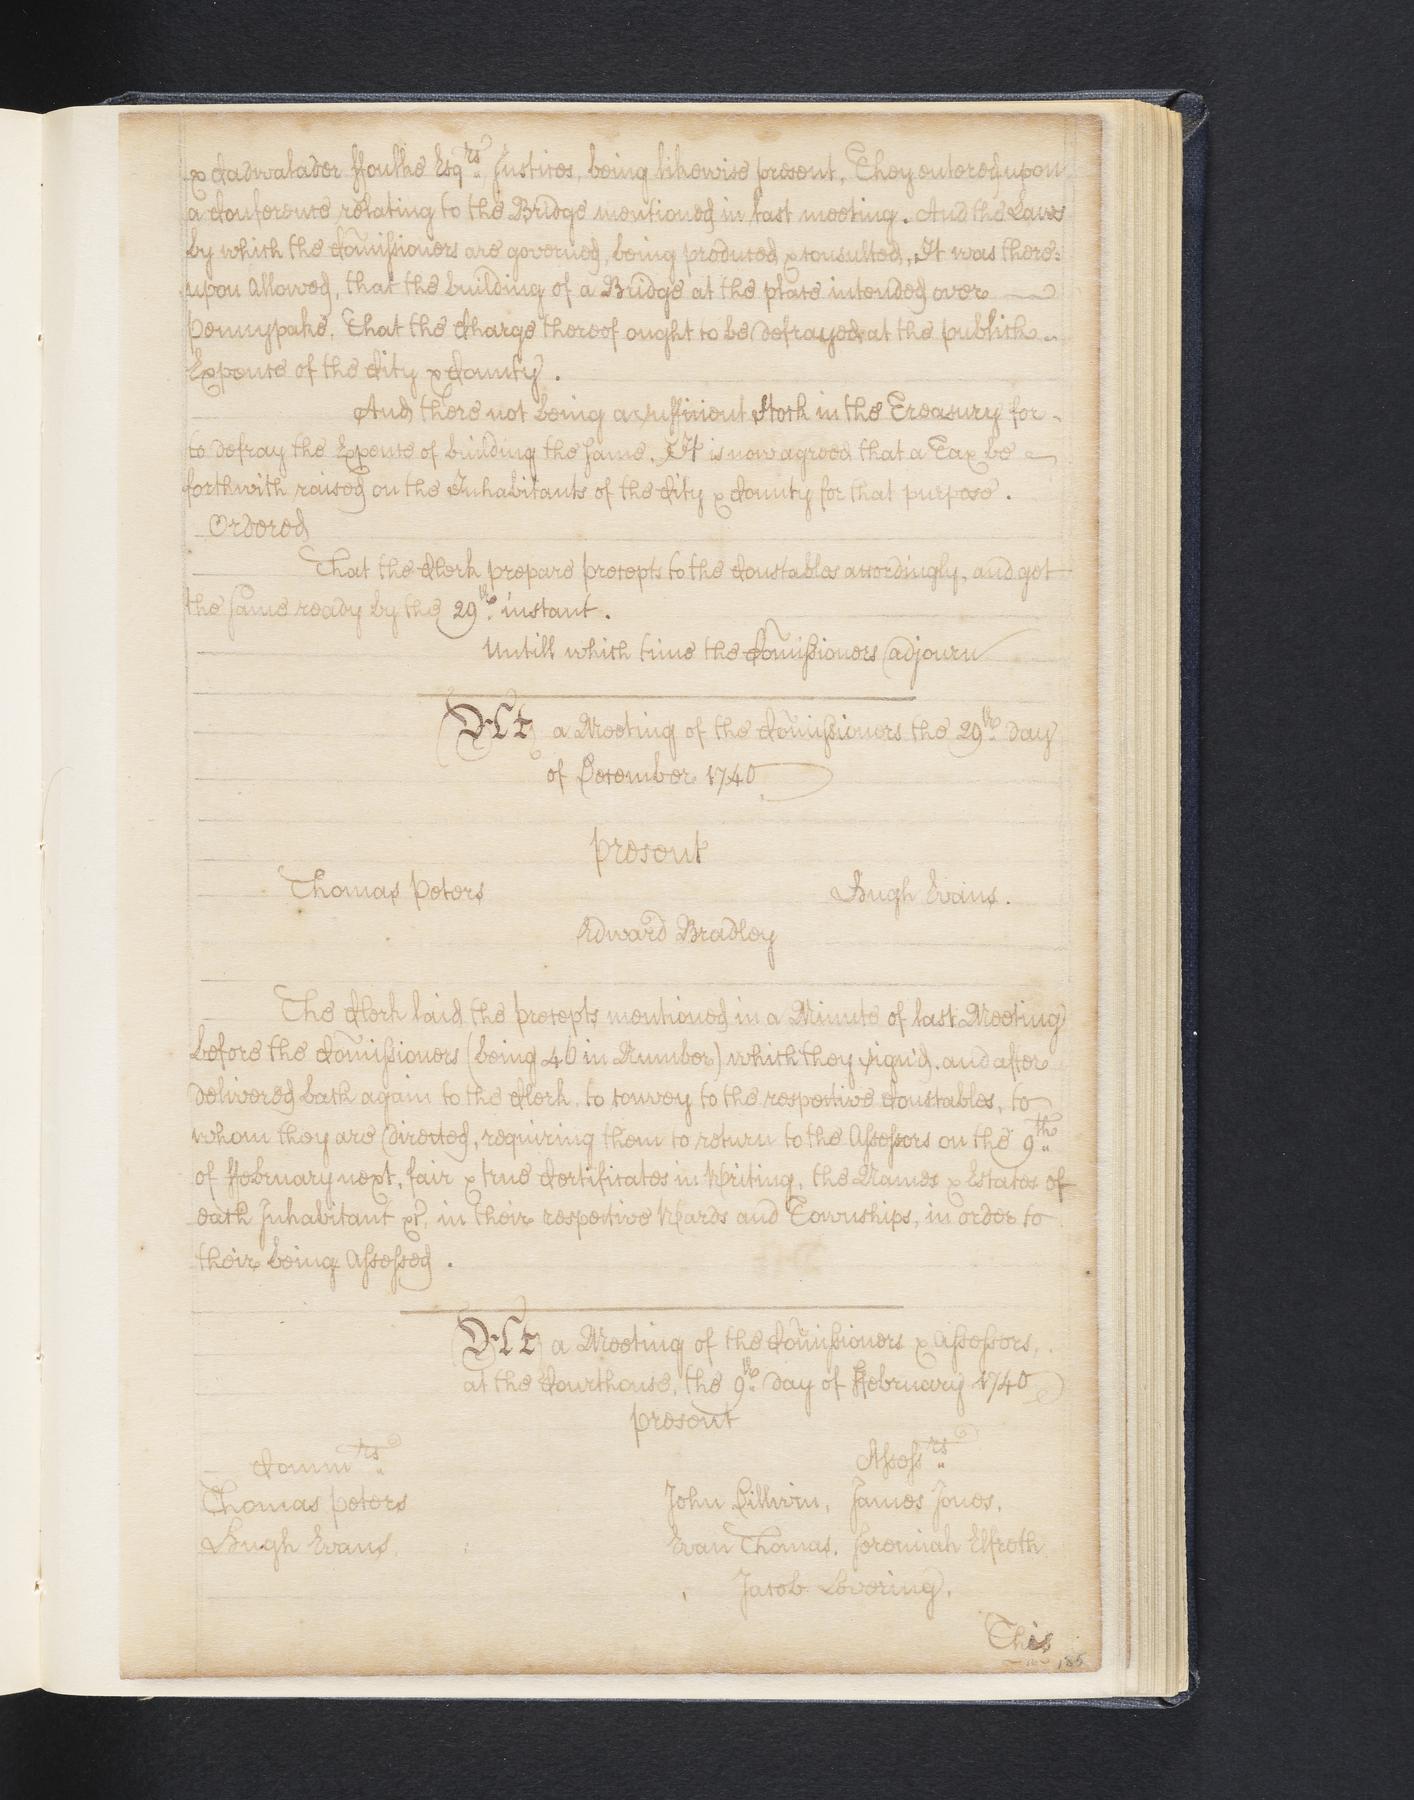 & Cadwalader ffoulke Esqrs. Justices, being likewise present, They entered upon
a Conference relating to the Bridge mentioned in last meeting. And the Laws
by which the Comissioners are governed, being produced & consulted, It was there:
upon Allowed, that the building of a Bridge at the place intended over
Pennypake, That the Charge thereof ought to be defrayed at the publick
Expence of the City & County.
And there not being a sufficient Stock in the Treasury for
to defray the Expence of building the same. It is now agreed that a Tax be
forthwith raised on the Inhabitants of the City & County for that purpose.
Ordered
That the Clerk prepare precepts to the Constables accordingly, and get
the same ready by the 29th instant.
Untill which time the Comissioners adjourn
At a Meeting of the Comissioners the 29th day
of December 1740
present
Thomas Peters Hugh Evans.
Edward Bradley
The Clerk laid the precepts mentioned in a Minute of last Meeting
before the Comissioners (being 46 in Number) which they sign'd, and after
delivered back again to the Clerk, to convey to the respective Constables, to
whom they are directed, requiring them to return to the Assessors on the 9th
of ffebruary next, fair & true Certificates in Writing, the Names & Estates of
each Inhabitant &c, in their respective Wards and Townships, in order to
their being Assessed.
At a Meeting of the Comissioners & Assessors,
at the Courthouse, the 9th day of ffebruary 1740
present
Commrs. Assessrs.
Thomas Peters John Dillwin, James Jones,
Hugh Evans. Evan Thomas, Jeremiah Elfreth
Jacob Levering,
This
185